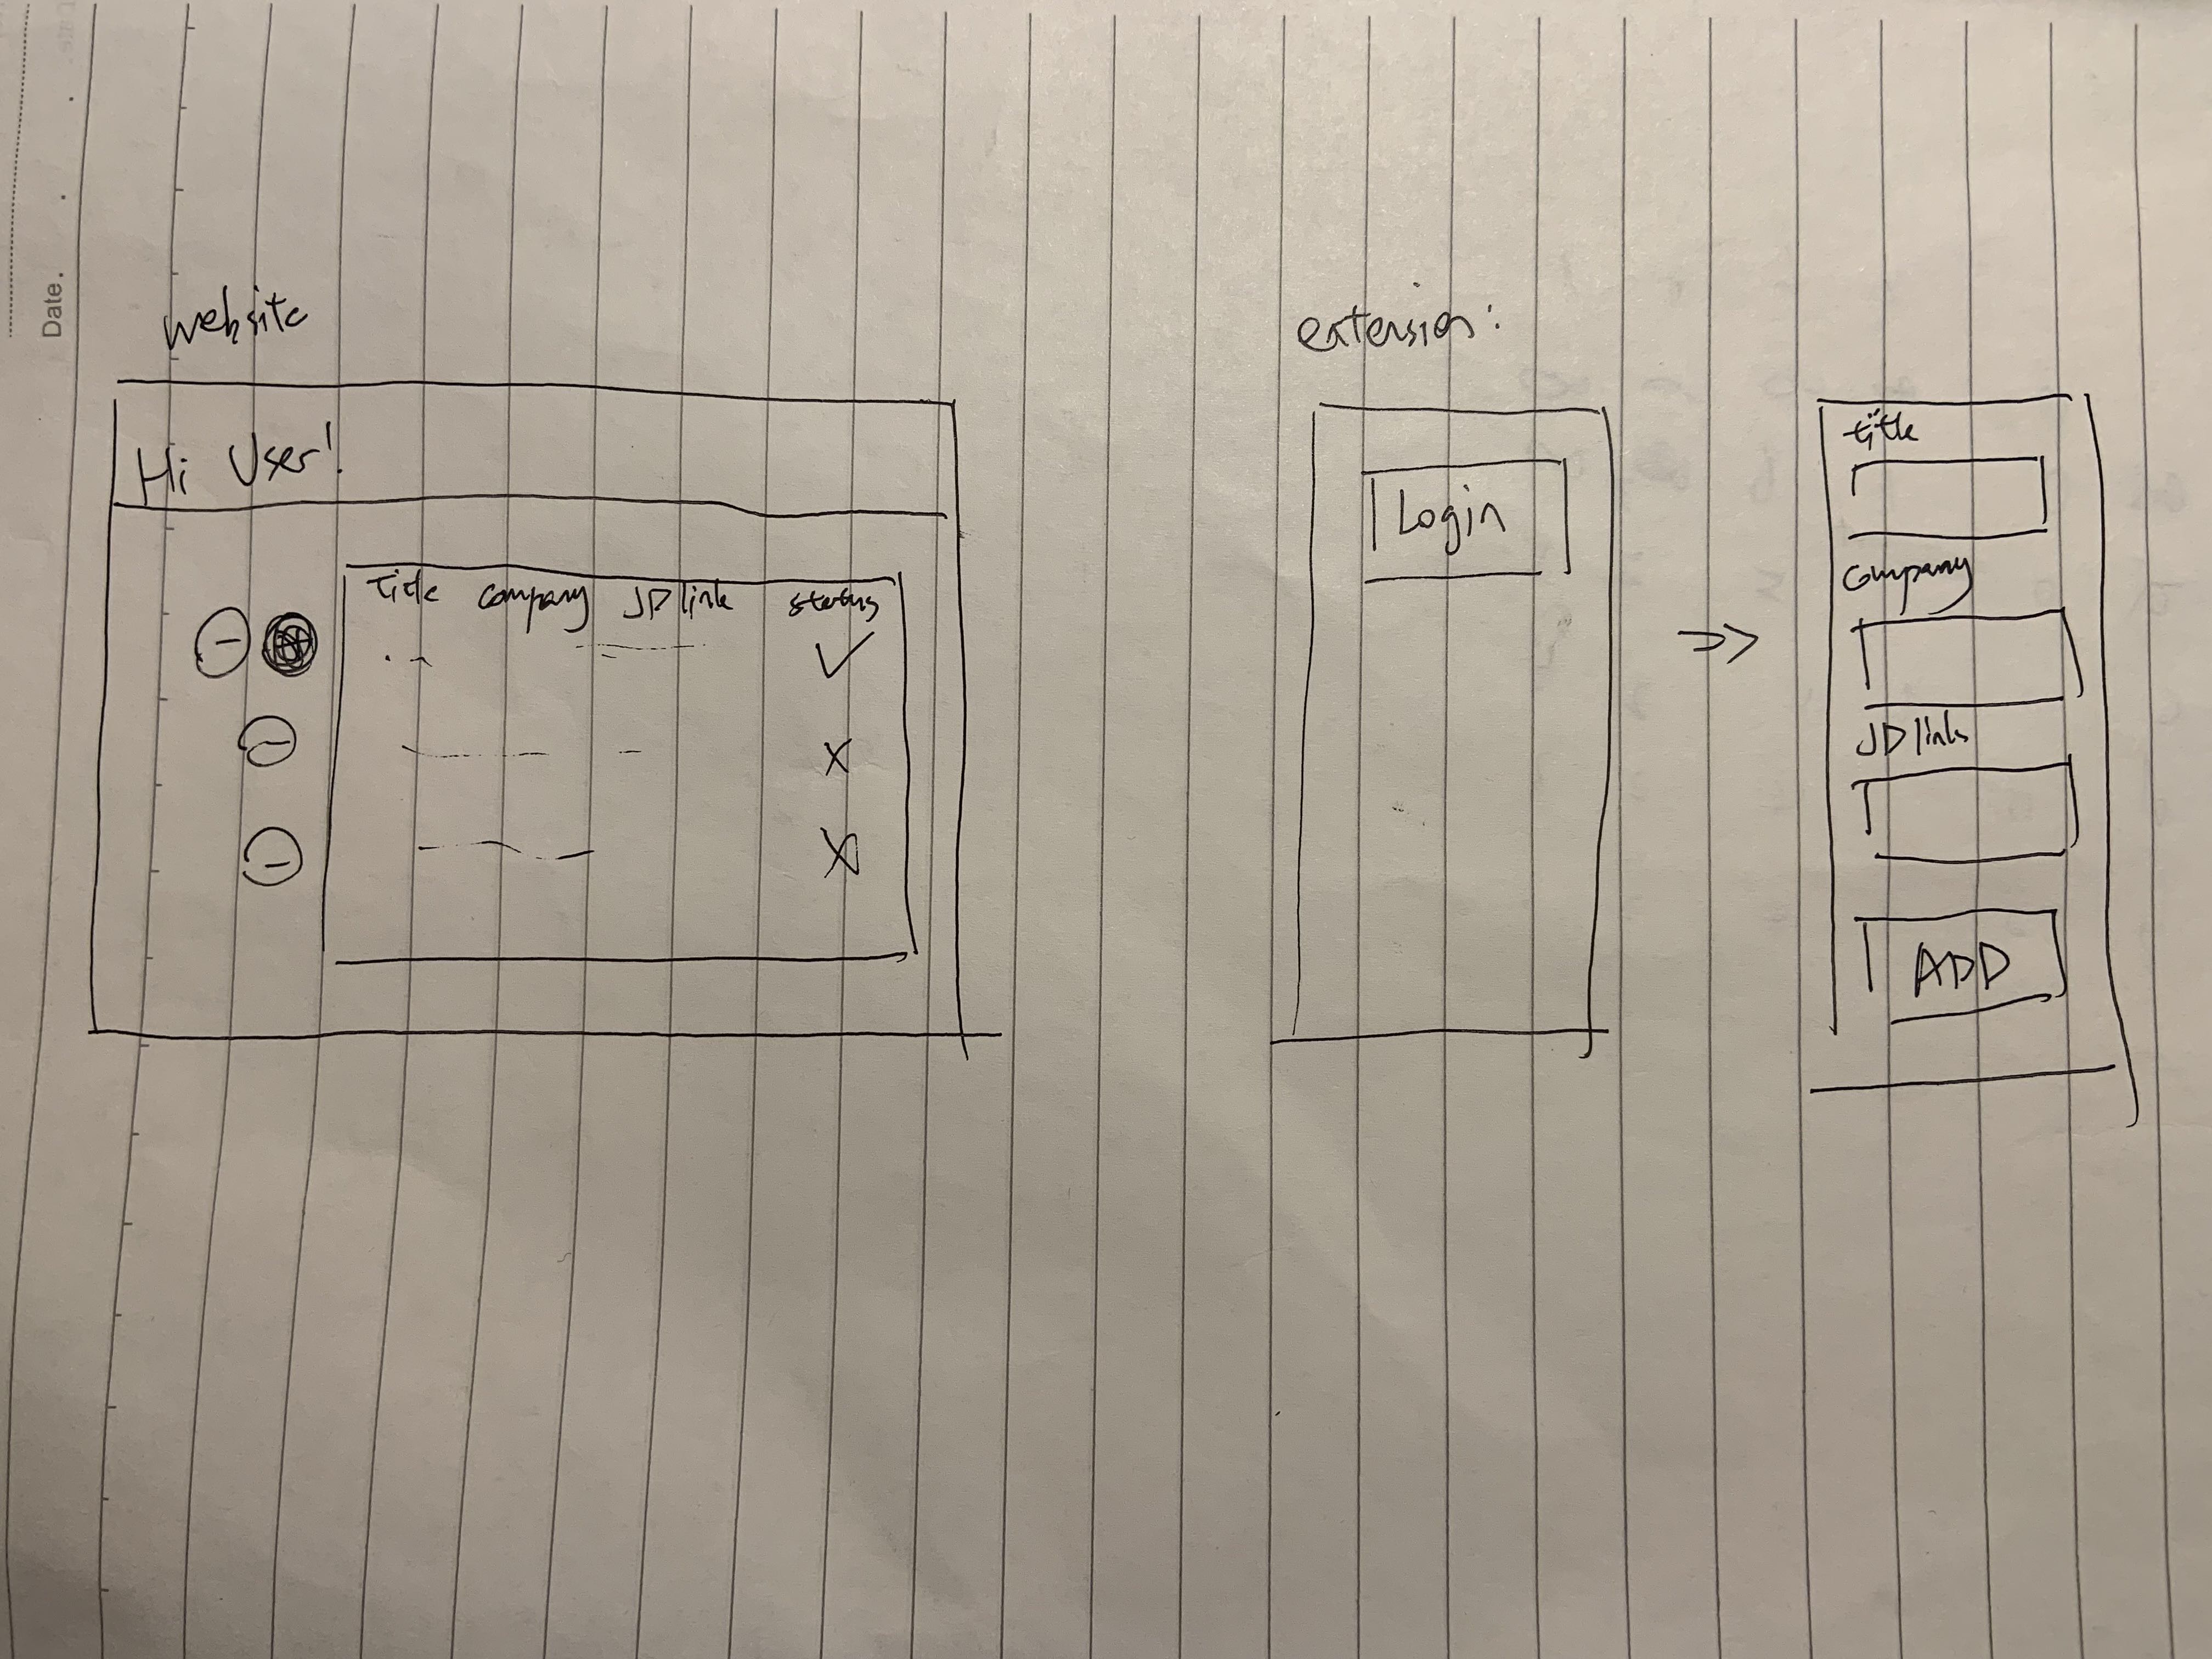 Date.
website
Hi User!
title company JD link status
extension:
Login
title
company
JD link
ADD